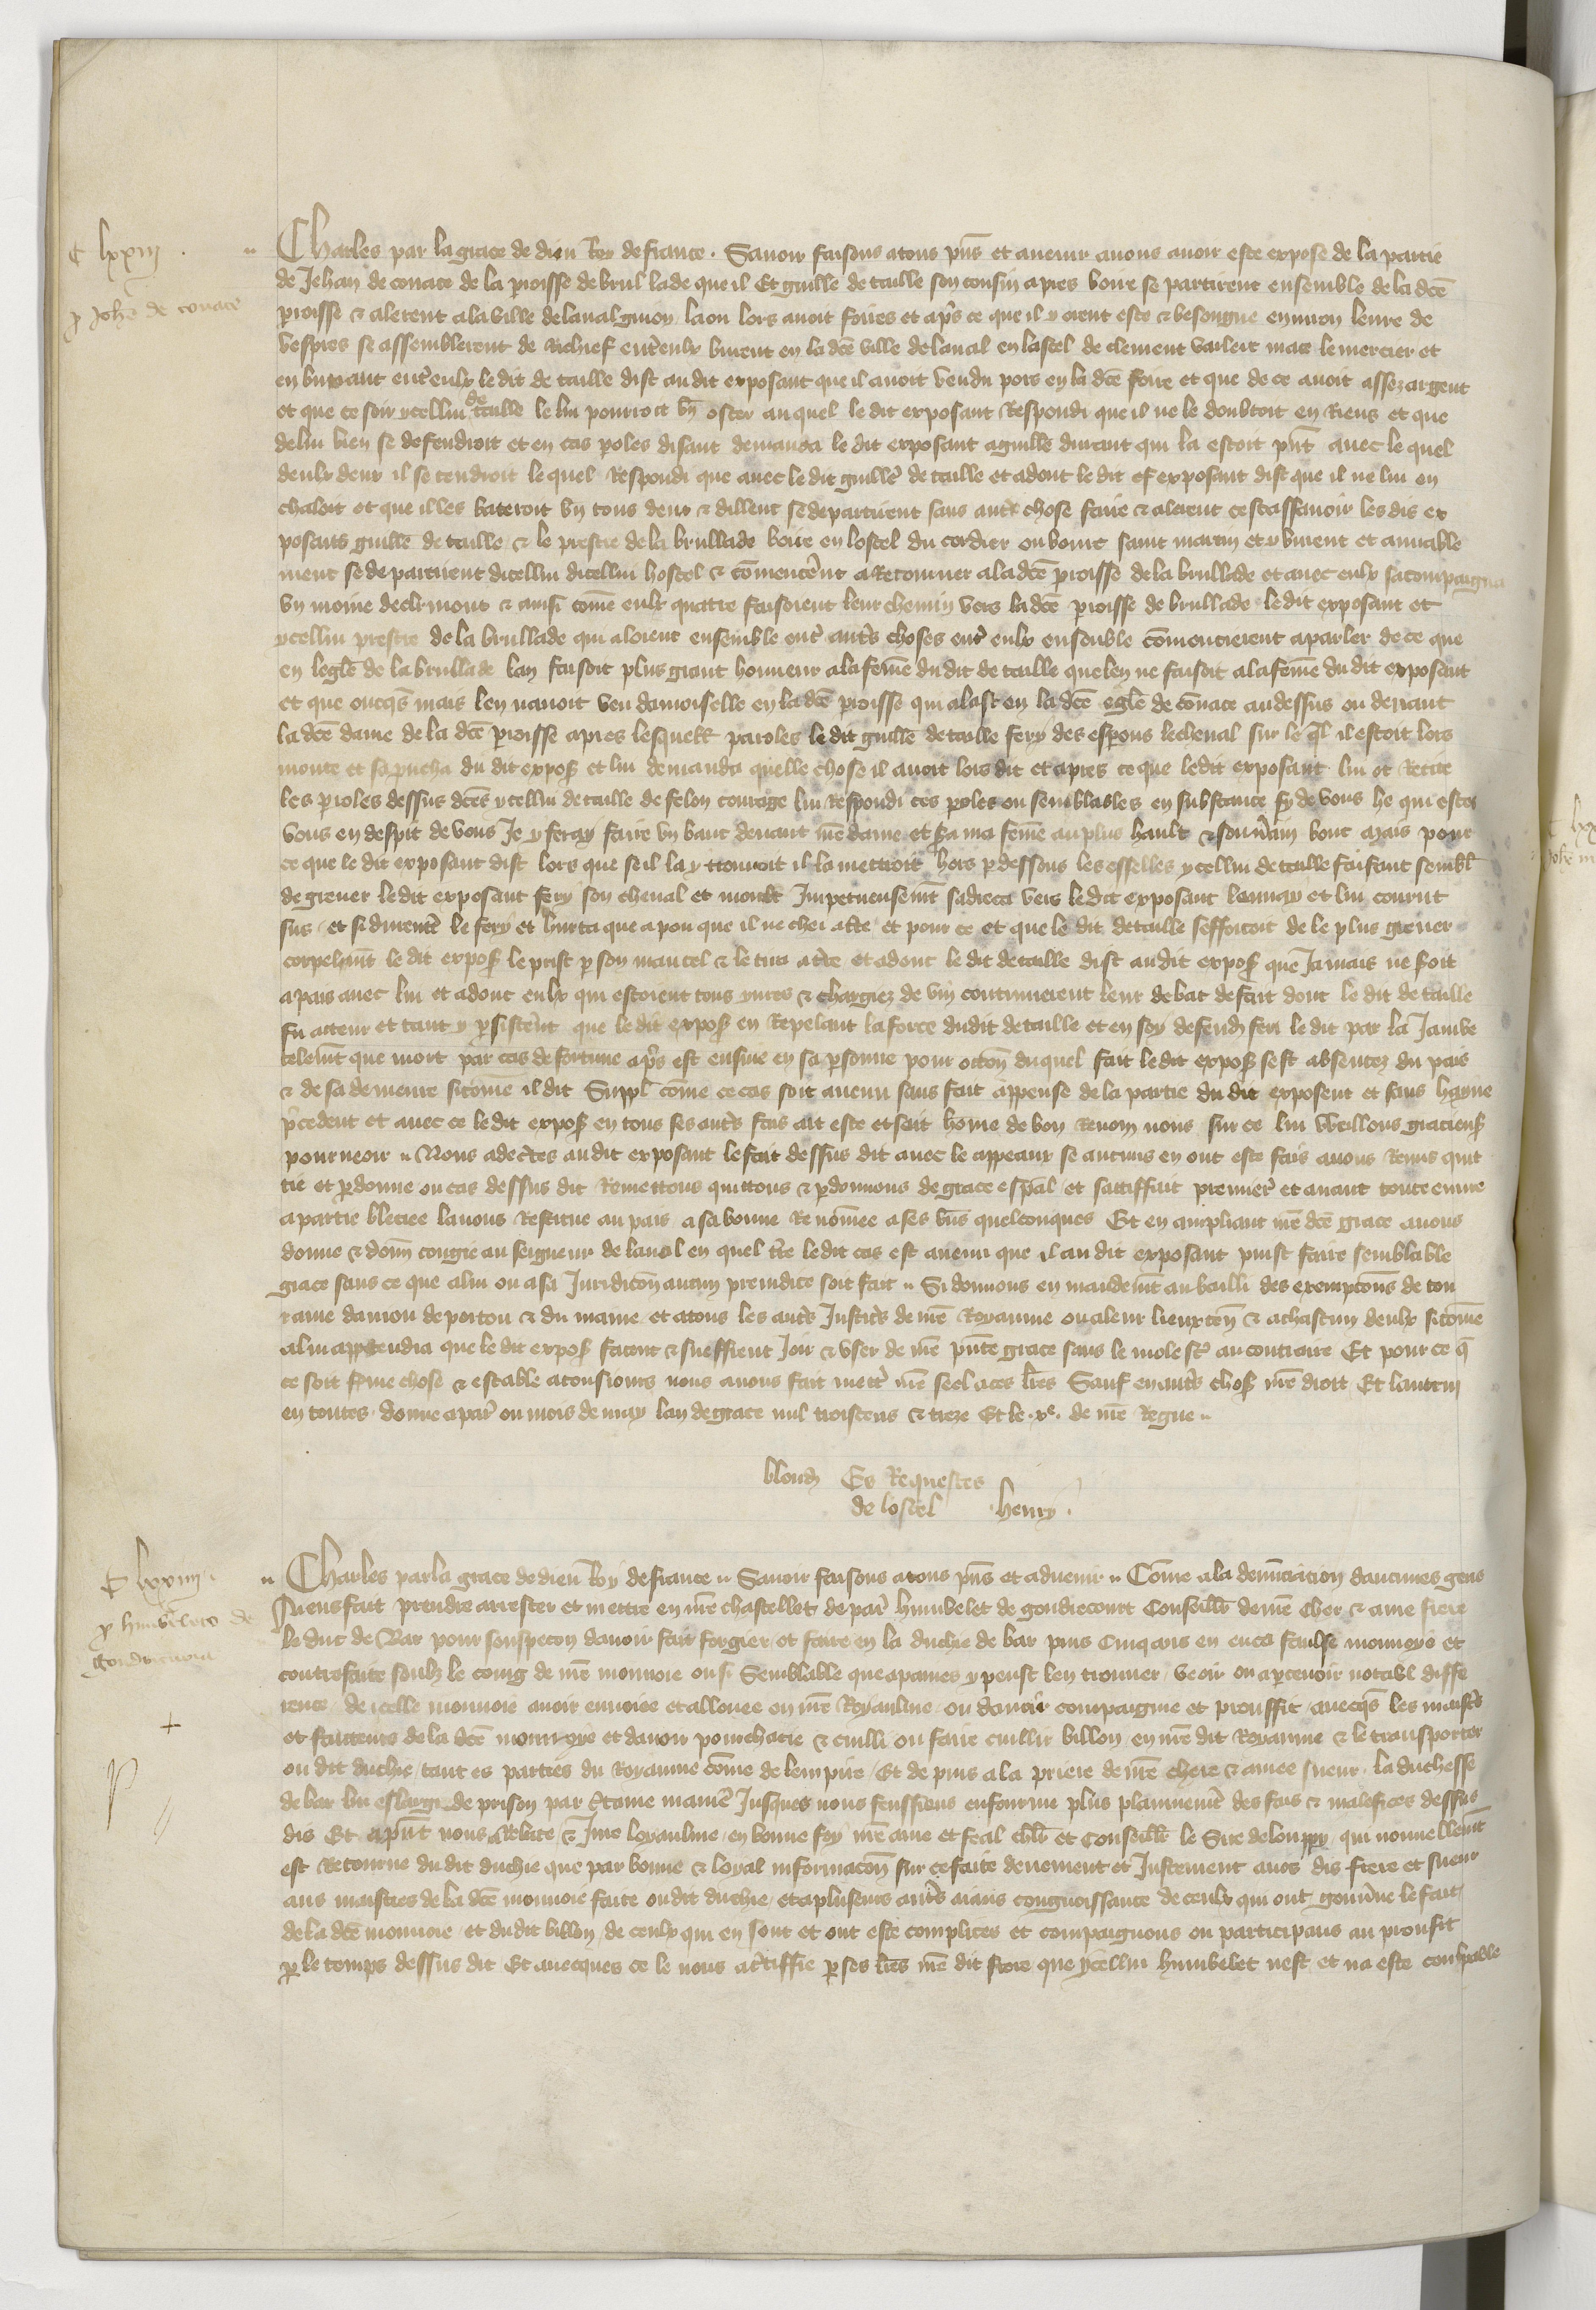 C lxxiij .
p Johē de couace
Charles par la grace de dieu Roy de france . Sauoir faisons a tous pn̄s et auenir a nous auoir este expose de la partie
de Jehan de couace de la ꝑroisse de brullade que il Et guille de taille son cousin apres boire se partirent ensemble de la dcē
ꝑroisse & alerent a la ville de laual guion la ou lors auoit foires et ap̄s ce que il y orent este & besongne enuiron leure de
vespres se assemblerent de rechief entr̄eulx burent en la dcē ville de laual en lostel de clement vaileit mace le mercier et
en buuant entr̄eulx le dit de taille dist au dit exposant que il auoit vendu pors en la dcē foire et que de ce auoit assez argent
et que ce soir ycellui de taille le lui pourroit bn̄ oster au quel le dit exposant Respondi que il ne le doubtoit en Riens et que
de lui bien se defendroit et en ces ꝑoles disant demanda le dit exposant a guille durant qui la estoit pn̄t auec le quel
deulx deux il se tendroit le quel Respondi que auec le dit guillē de taille et adont le dit exposant dist que il ne lui en
chaloit et que il les bateroit bn̄ tous deux & dillent se departirent sans autr̄ chose faire & alerent cestassauoir les dis ex
posans guille de taille & le prestre de la brullade boire en lostel du cordier ou bourc saint martin et y burent et amiable
ment se departirent dicellui dicellui hostel & cōmencēr̄nt a Retourner a la dcē ꝑroisse de la brullade et auec eulx sacompaigna
vn moine declermont & ainsi cōme eulx quatre faisoient leur chemin vers la dcē ꝑroisse de brullade le dit exposant et
ycellui prestre de la brullade qui aloient ensemble entr̄ autr̄s choses entr̄ eulx ensenble cōmencierent a parler de ce que
en leglē de la brullade len faisoit plus grant honneur a la fēme du dit de taille que len ne faisoit a la fēme du dit exposant
et que oncqs̄ mais len nauoit veu damoiselle en la dcē ꝑroisse qui alast en la dcē eglē de couace au dessus ou deuant
la dcē dame de la dcē ꝑroisse apres lesquelx paroles le dit guillē de taille fery des esperons le cheual sur le ql̄ il estoit lors
monte et saprucha du dit expos̄ et lui demanda quelle chose il auoit lors dit et apres ce que le dit exposant lui ot Recite
les ꝑroles dessus dcēs ycellui de taille de felon courage lui Respondi ces ꝑoles ou semblables en substance fy de vous he qui estes
vous en despit de vous Je y feray faire vn banc deuant mē dame et sa ma fēme au plus hault & souūain bout mais pour
ce que le dit exposant dist lors que se il la y trouuoit il la mettroit hors ꝑ dessous les esselles ycellui de taille faisant sembl̄
de greuer le dit exposant fery son cheual et moult Jmpetueusemēt sadreca vers le dit exposant et lui courut
sus et si durement le fery et hurta que a pou que il ne chei a tr̄e et pour ce et que le dit de taille sefforcoit de le plus greuer
le dit expos̄ le prist ꝑ son mantel & le tira a tr̄e et adont le dit de taille dist au dit expos̄ que Jamais ne soit
a pais auec lui et adont eulx qui estoient tous yures & chargiez de vin continuerent leur debat de fait dont le dit de taille
fu acteur et tant y ꝑsistēr̄nt que le dit expos̄ en Repelant la force du dit de taille et en soy defend̄ feri le dit par la Jambe
telemēt que mort par cas de fortune ap̄s est ensuie en sa ꝑsonne pour occōn duquel fait le dit expos̄ sest absentez du pais
& de sa demeure sicōme il dit Suppl̄ cōme ce cas soit auenu sans fait appense de la partie du dit exposent et sans hayne
p̄cedent et auec ce le dit expos̄ en tous ses autr̄s fais ait este et soit hōme de bon Renom nous sur ce lui vueillons graciens̄
pourueoir . Nous adecr̄tes au dit exposant le fait dessus dit auec le appeaux se aucuns en ont este fais auons Remis quit
tie et ꝑdonne ou cas dessus dit Remettons quittons & ꝑdonnons de grace espāl et sattiffait premier̄ et auant toute euure
a partie bleciee lauons Restitue au pais a sa bonne Renōmee a ses bn̄s quelconques Et en ampliant nrē dcē grace auons
donne & donn̄ congie au seigneur de laual en quel tr̄re le dit cas est auenu que il au dit exposant puist faire semblable
grace sans ce que a lui ou a sa Juridicōn aucun preiudice soit fait . Si donnons en mandemēt au bailli des exempcōns de tou
raine daniou de poitou & du maine et a tous les autr̄s Justicr̄s de nrē Royaume ou a leur lieuxten̄ & a chascun deulx sicōme
a lui appartendra que le dit expos̄ facent & sueffrent Joir & vser de nrē pn̄te grace sans le molestr̄ au contraire Et pour ce q̄
ce soit ferme chose & estable a tousiours nous auons fait mettr̄ nrē seel a ces lr̄es Sauf en autr̄s chos̄ nrē droit Et lautruy
en toutes . donne a par̄ ou mois de may lan de grace mil troiscens & treze Et le .xe. de nrē Regne .
blond̄ Es Requestes
de lostel henry .
C lxxiiij .
p humbeleto de
gondricuria
Charles par la grace de dieu Roy de france . Sauoir faisons a tous pn̄s et aduenir . Cōme a la denūciation daucunes gens
Nuens fait prendre arrester et mettre en nrē chastellet de par̄ humbelet de gondrecourt Conseillr̄ de nrē cher & ame frere
le duc de Bar pour souspecon dauoir fait forgier et faire en la duchie de bar puis cinq ans en enca faulse monnoye et
contrefaite soubz le coing de nrē monnoie ou si semblable que a paines y peust len trouuer veoir ou aꝑceuoir notabl̄ diffe
rence de icelle monnoie auoir enuoiee et allouee en nrē Royaulme ou dauoir compaignie et prouffit auecqs̄ les maistr̄s
et facteurs de la dcē monnoye et dauoir pourchacie & cuilli ou faire cuillir billon en nrē dit Royaume & le transporter
ou dit duchie tant es parties du Royaume cōme de lempire Et de puis a la priere de nrē chere & amee sueur la duchesse
de bar lui eslargi de prison par certaine manier̄ Jusques nous feussiens enfourme plus plainnemēt des fais & malefices dessus
dis Et apn̄t nous a Relate & Jure loyaulme en bonne foy nrē ame et feal chlr̄ et Conseillr̄ le Sire de louppy qui nouuellemēt
est Retourne du dit duchie que par bonne & loyal informacōn sur ce faite deuement et Justement auos dis frere et sueur
aus maistres de la dcē monnoie faite ou dit duchie et a pluseurs autr̄s aians congnoissance de ceulx qui ont gouūne le fait
de la dcē monnoie et du dit billon de ceulx qui en sont et ont este complices et compaignons ou participans au proufit
ꝑ le temps dessus dit Et auecques ce le nous a cr̄tiffie ꝑ ses lr̄es nrē dit frere que ycellui humbelet nest et na este coulpable